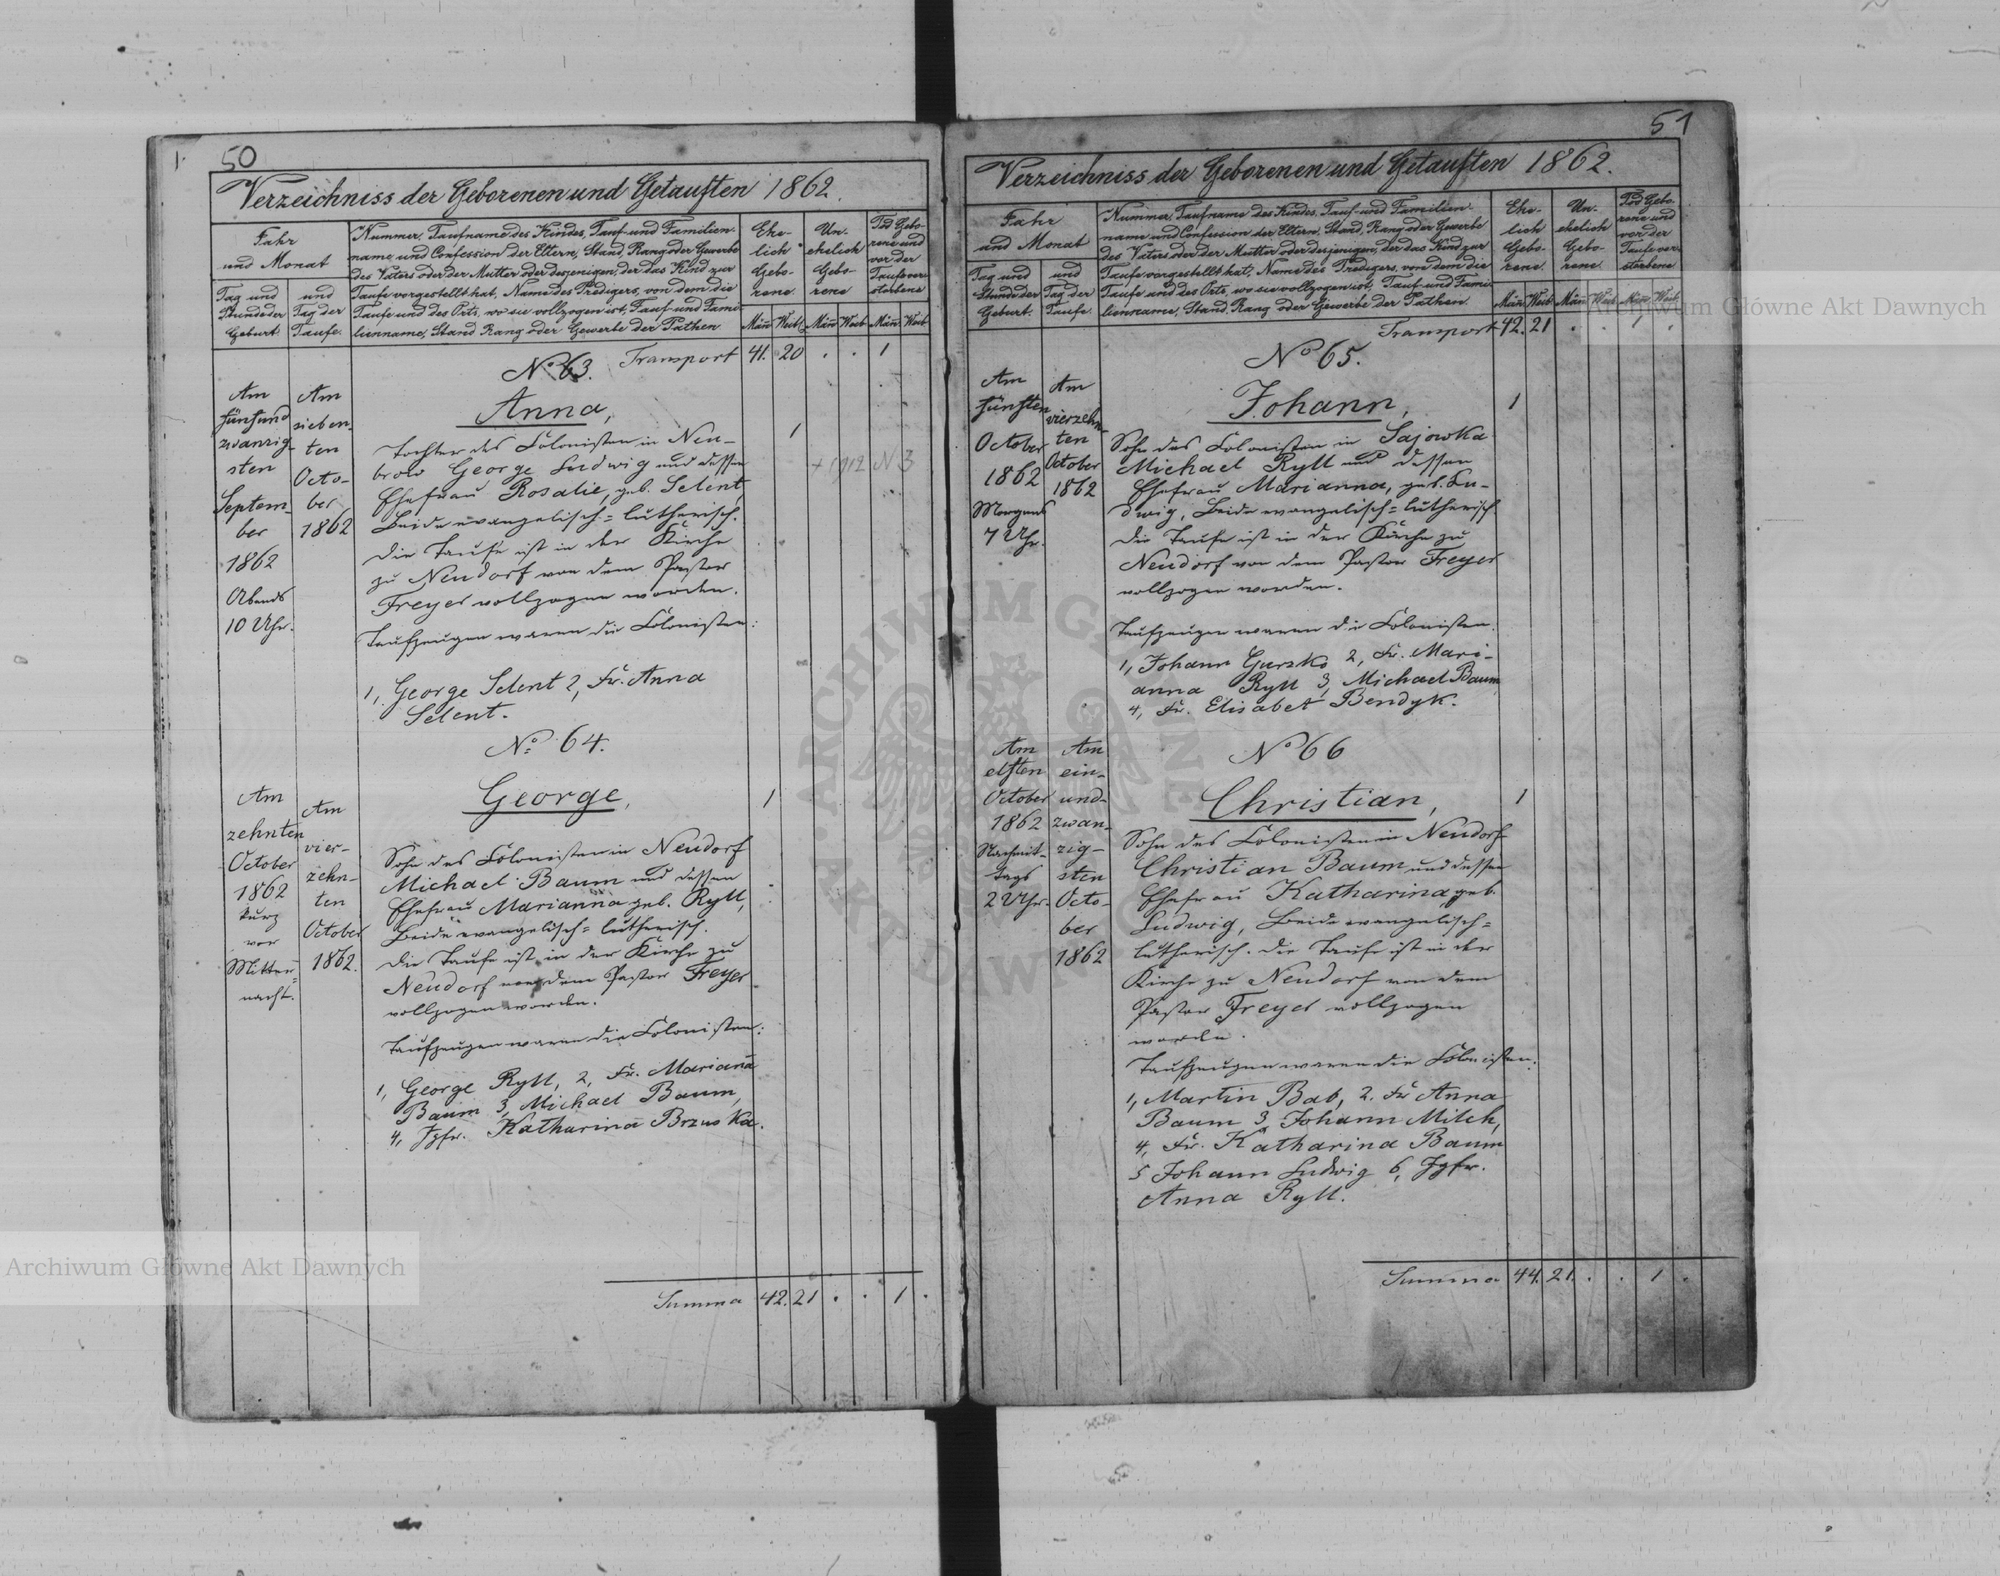 50
Verzeichniss der Geborenen und Getauften 1862.
Jahr
und Monat
Tag und
Stunde der
Geburt.
und
Tag der
Taufe.
Nummer, Taufname des Kindes, Tauf- und Familien-
name und Confession der Eltern, Stand, Rang oder Gewerbe
des Vaters oder der Mutter oder desjenigen, der das Kind zur
Taufe vorgestellt hat, Name des Predigers, von dem die
Taufe und des Orts, wo sie vollzogen ist, Tauf- und Fami-
lienname, Stand Rang oder Gewerbe der Pathen
Ehe-
lich
Gebo-
rene
Un-
ehelich
Gebo-
rene
Tod Gebo-
rene und
vor der
Taufe ver-
storbene
Män Weib Män Weib Män Weib
Transport 41. 20 . . 1
No 63.
Am
fünfund
zwanzig-
sten
Septem-
ber
1862
Abends
10 Uhr.
Am
sieben-
ten
Octo-
ber
1862
Anna,
Tochter des Colonisten in Neu-
brow George Ludwig und dessen
Ehefrau Rosalie, geb. Selent,
Beide evangelisch-lutherisch.
Die Taufe ist in der Kirche
zu Neudorf von dem Pastor
Freyer vollzogen worden.
Taufzeugen waren die Colonisten:
1, George Selent 2, Fr. Anna
Selent.
1
+ 1912 N 3
No 64.
Am
zehnten
October
1862
kurz
vor
Mitter-
nacht.
Am
vier-
zehn-
ten
October
1862.
George,
Sohn des Colonisten in Neudorf
Michael Baum und dessen
Ehefrau Marianna geb. Ryll,
Beide evangelisch-lutherisch.
Die Taufe ist in der Kirche zu
Neudorf von dem Pastor Freyer
vollzogen worden.
Taufzeugen waren die Colonisten:
1, George Ryll, 2, Fr. Mariana
Baum 3, Michael Baum,
4, Jgfr. Katharina Brzuska.
1
Summa 42. 21 . . 1 .
51
Verzeichniss der Geborenen und Getauften 1862.
Jahr
und Monat
Tag und
Stunde der
Geburt.
und
Tag der
Taufe.
Nummer, Taufname des Kindes, Tauf- und Familien-
name und Confession der Eltern, Stand, Rang oder Gewerbe
des Vaters oder der Mutter oder desjenigen, der das Kind zur
Taufe vorgestellt hat, Name des Predigers, von dem die
Taufe und des Orts, wo sie vollzogen ist, Tauf- und Fami-
lienname, Stand, Rang oder Gewerbe der Pathen
Ehe-
lich
Gebo-
rene
Un-
ehelich
Gebo-
rene.
Tod Gebo-
rene und
vor der
Taufe ver-
storbene
Män Weib Män Weib Män Weib
Transport 42. 21 . . 1 .
No 65.
Am
fünften
October
1862
Morgens
7 Uhr.
Am
vierzehn-
ten
October
1862
Johann,
Sohn des Colonisten in Sajowka
Michael Ryll und dessen
Ehefrau Marianna, geb. Lu-
dwig, Beide evangelisch-lutherisch
Die Taufe ist in der Kirche zu
Neudorf von dem Pastor Freyer
vollzogen worden.
Taufzeugen waren die Colonisten:
1, Johann Gurzko 2, Fr. Mari-
anna Ryll 3, Michael Baum,
4, Fr. Elisabet Bendyk.
1
No 66
Am
elften
October
1862
Nachmit-
tags
2 Uhr.
Am
ein-
und-
zwan-
zig-
sten
Octo-
ber
1862
Christian,
Sohn des Colonisten in Neudorf
Christian Baum und dessen
Ehefrau Katharina geb.
Ludwig, Beide evangelisch-
lutherisch. Die Taufe ist in der
Kirche zu Neudorf von dem
Pastor Freyer vollzogen
worden.
Taufzeugen waren die Colonisten:
1, Martin Bab, 2. Fr Anna
Baum 3, Johann Milch,
4, Fr. Katharina Baum
5 Johann Ludwig 6, Jgfr.
Anna Ryll.
1
Summa 44. 21. . . 1 .
Archiwum Główne Akt Dawnych
Archiwum Główne Akt Dawnych